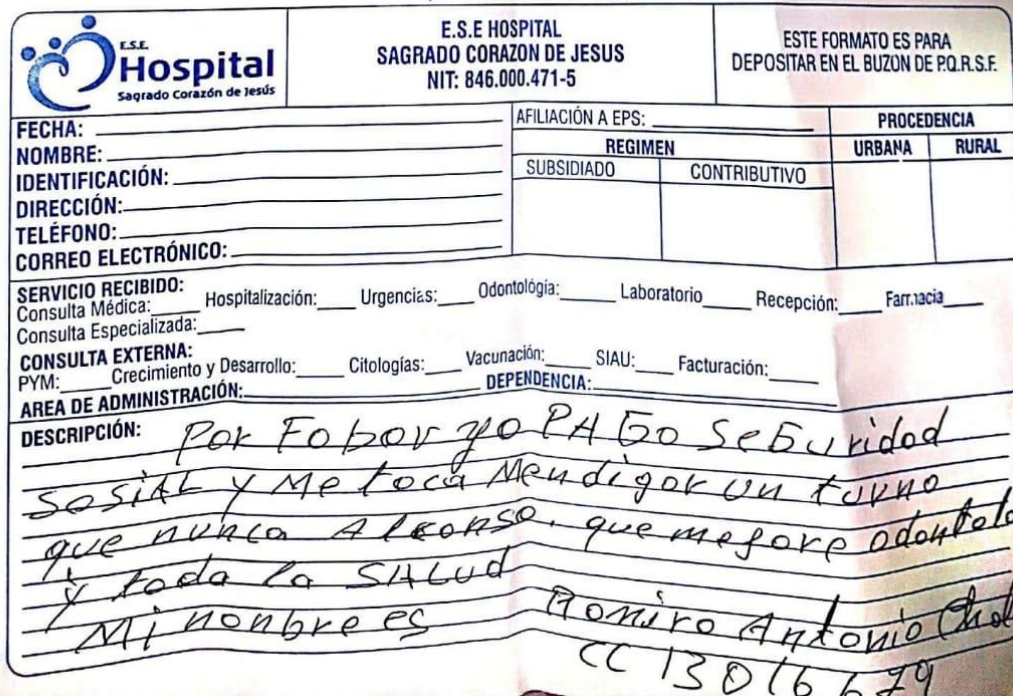 E.S.E.
Hospital
Sagrado Corazón de Jesús
E.S.E HOSPITAL
SAGRADO CORAZON DE JESUS
NIT: 846.000.471-5
ESTE FORMATO ES PARA
DEPOSITAR EN EL BUZON DE P.Q.R.S.F.
FECHA:
NOMBRE:
IDENTIFICACIÓN:
DIRECCIÓN:
TELÉFONO:
CORREO ELECTRÓNICO:
AFILIACIÓN A EPS:
REGIMEN
SUBSIDIADO CONTRIBUTIVO
PROCEDENCIA
URBANA RURAL
SERVICIO RECIBIDO:
Consulta Médica: Hospitalización: Urgencias: Odontología: Laboratorio Recepción: Farmacia
Consulta Especializada:
CONSULTA EXTERNA:
PYM: Crecimiento y Desarrollo: Citologías: Vacunación: SIAU: Facturación:
AREA DE ADMINISTRACIÓN: DEPENDENCIA:
DESCRIPCIÓN: Por Fobor yo PAGo SeGuridad
SosiAL y Me toca Mendigar un turno
que nunca Alconso. que mejore odontolo
y toda la SALud
Mi nonbre es Romiro Antonio
CC